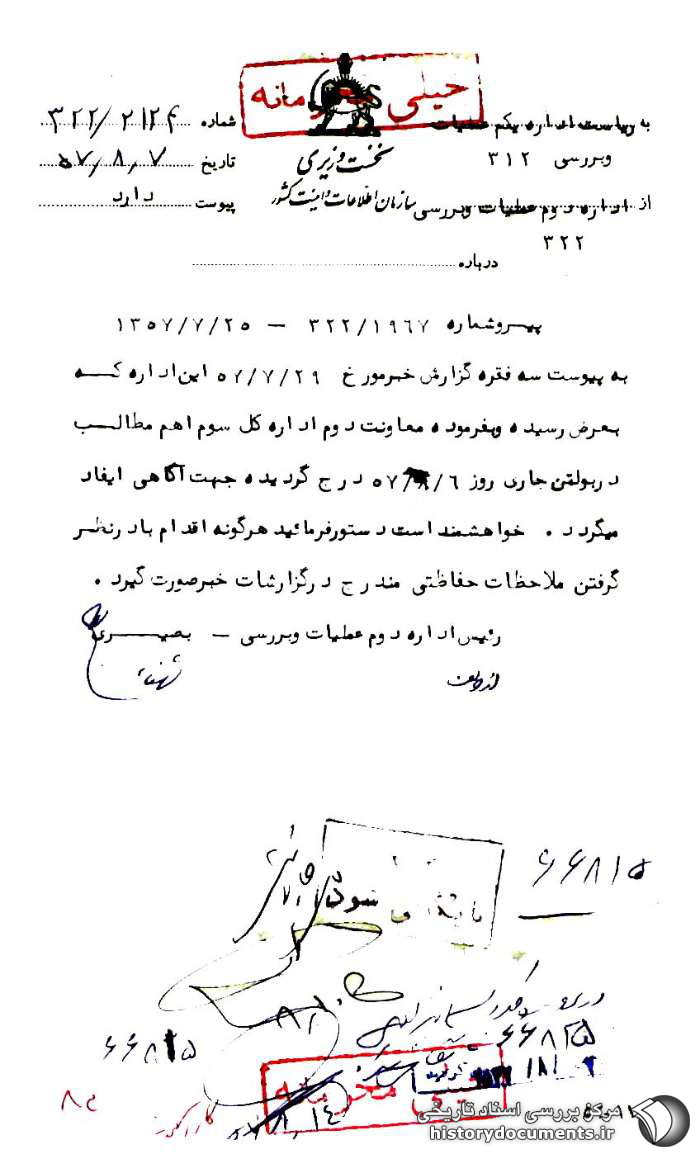 خیلی محرمانه
نخست وزیری
سازمان اطلاعات و امنیت کشور
به ریاست اداره یکم عملیات
وبررسی ۳۱۲
از اداره دوم عملیات وبررسی
۳۲۲
شماره ۳۲۲/۲۱۲۴
تاریخ ۵۷/۸/۷
پیوست دارد
درباره
پیروشماره ۳۲۲/۱۹۶۷ – ۱۳۵۷/۷/۲۵
به پیوست سه فقره گزارش خبرمورخ ۵۷/۷/۲۹ این اداره که
بعرض رسیده وبفرموده معاونت دوم اداره کل سوم اهم مطالب
دربولتن جاری روز ۵۷/۸/۶ درج گردیده جهت آگاهی ایفاد
میگردد . خواهشمند است دستورفرمائید هرگونه اقدام بادرنظر
گرفتن ملاحظات حفاظتی مندرج درگزارشات خبرصورت گیرد .
رئیس اداره دوم عملیات وبررسی – بصیری
از طرف
۶۶۸۱۵
شود
۸/۱۰
۶۶۸۲۵
۶۶۸۱۵
خیلی محرمانه
مرکز بررسی اسناد تاریخی
historydocuments.ir